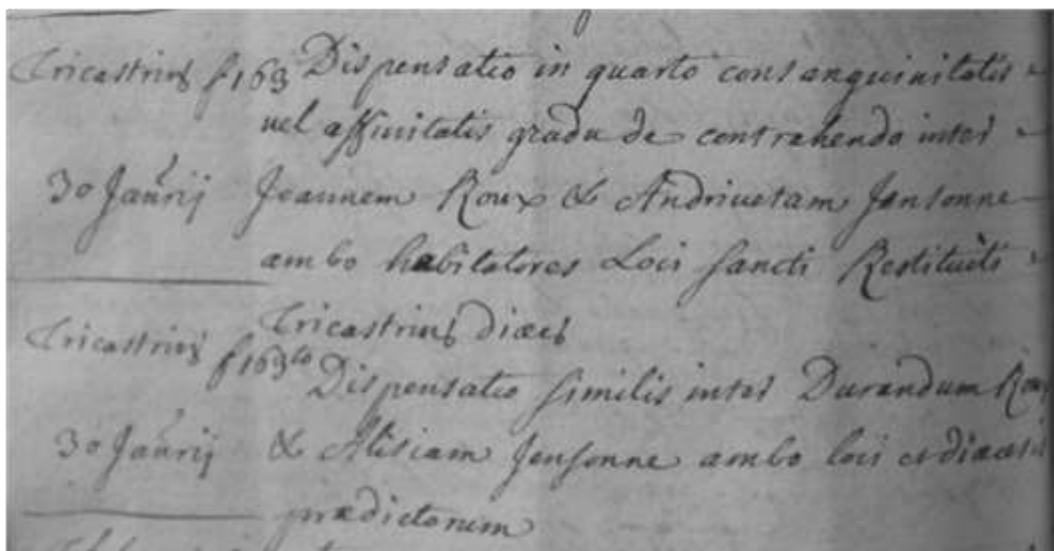 Tricastrin̄ f 163 Dispensatio in quarto consanguinitatis
vel affinitatis gradu de contrahendo inter
30 Jan̄rij Joannem Roux & Andrivetam Jensonne
ambo habitatores Loci Sancti Restituti
Tricastrin̄ diœcs
Tricastrin̄ f 163 to Dispensatio similis inter Durandum Roux
30 Jan̄rij & Alisiam Jensonne ambo loci et diœcesis
prædictorum